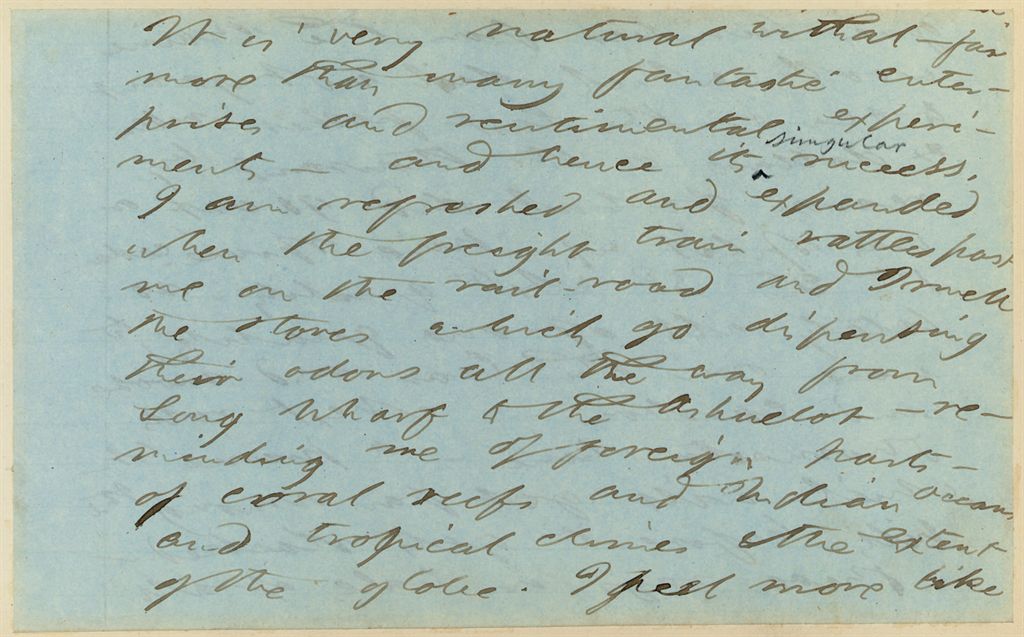 It is very natural withal — far
more than many fantastic enter-
prises and sentimental experi-
ments — and hence its singular success.
I am refreshed and expanded
when the freight train rattles past
me on the rail-road and I smell
the stores which go dispensing
their odors all the way from
Long Wharf to the Ashuelot — re-
minding me of foreign parts —
of coral reefs and Indian oceans
and tropical climes & the extent
of the globe. I feel more like